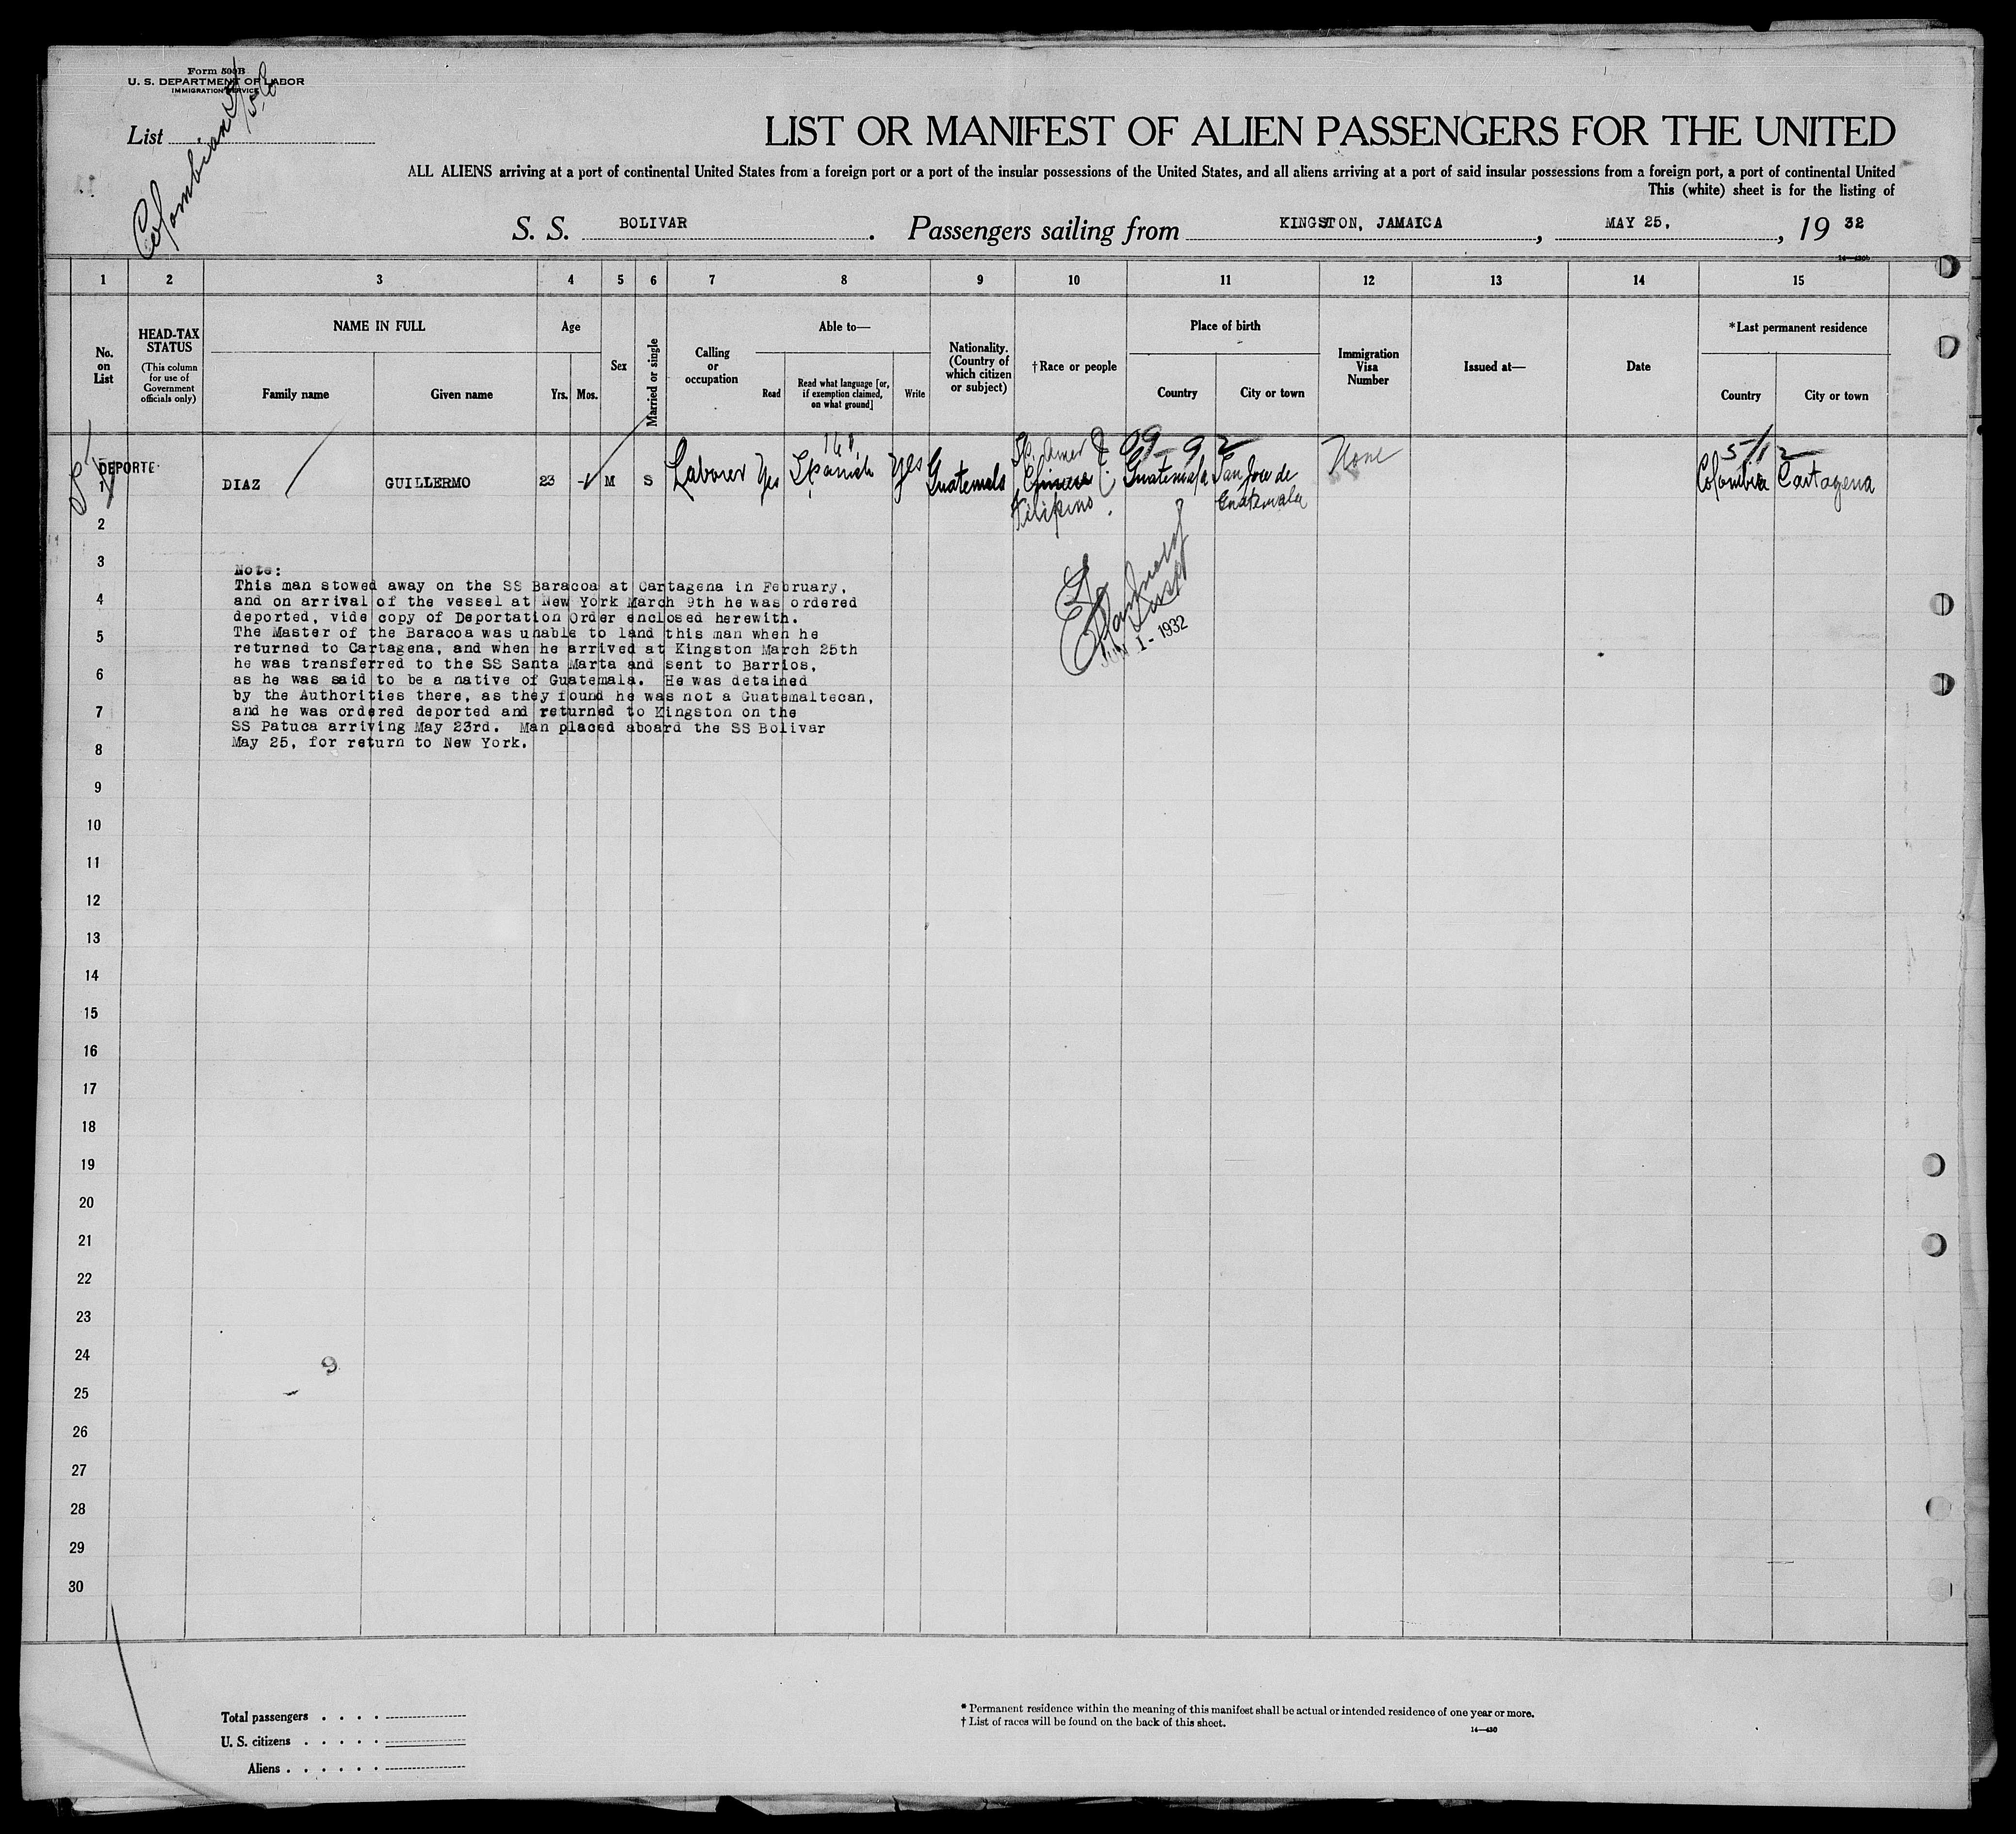 Form 500B
U. S. DEPARTMENT OF LABOR
IMMIGRATION SERVICE
Colombian
List
LIST OR MANIFEST OF ALIEN PASSENGERS FOR THE UNITED
ALL ALIENS arriving at a port of continental United States from a foreign port or a port of the insular possessions of the United States, and all aliens arriving at a port of said insular possessions from a foreign port, a port of continental United
This (white) sheet is for the listing of
S. S. BOLIVAR . Passengers sailing from KINGSTON, JAMAICA , MAY 25, , 19 32
1 2 3 4 5 6 7 8 9 10 11 12 13 14 15
No. on List
HEAD-TAX STATUS
(This column for use of Government officials only)
NAME IN FULL
Family name Given name
Age
Yrs. Mos.
Sex
Married or single
Calling or occupation
Able to—
Read
Read what language [or, if exemption claimed, on what ground]
Write
Nationality. (Country of which citizen or subject)
†Race or people
Place of birth
Country City or town
Immigration Visa Number
Issued at—
Date
*Last permanent residence
Country City or town
DEPORTE
1 DIAZ GUILLERMO 23 M S Laborer Yes Spanish Yes Guatemala Sp. Amer Chinese Filipino Guatemala San Jose de Guatemala None Colombia Cartagena
168
99-9 2
51 2
2
3
4
5
6
7
8
Note:
This man stowed away on the SS Baracoa at Cartagena in February,
and on arrival of the vessel at New York March 9th he was ordered
deported, vide copy of Deportation Order enclosed herewith.
The Master of the Baracoa was unable to land this man when he
returned to Cartagena, and when he arrived at Kingston March 25th
he was transferred to the SS Santa Marta and sent to Barrios,
as he was said to be a native of Guatemala. He was detained
by the Authorities there, as they found he was not a Guatemaltecan,
and he was ordered deported and returned to Kingston on the
SS Patuca arriving May 23rd. Man placed aboard the SS Bolivar
May 25, for return to New York.
JUN 1 - 1932
9
10
11
12
13
14
15
16
17
18
19
20
21
22
23
24
25
26
27
28
29
30
9
Total passengers . . . .
U. S. citizens . . . . .
Aliens . . . . . .
* Permanent residence within the meaning of this manifest shall be actual or intended residence of one year or more.
† List of races will be found on the back of this sheet.
14—430